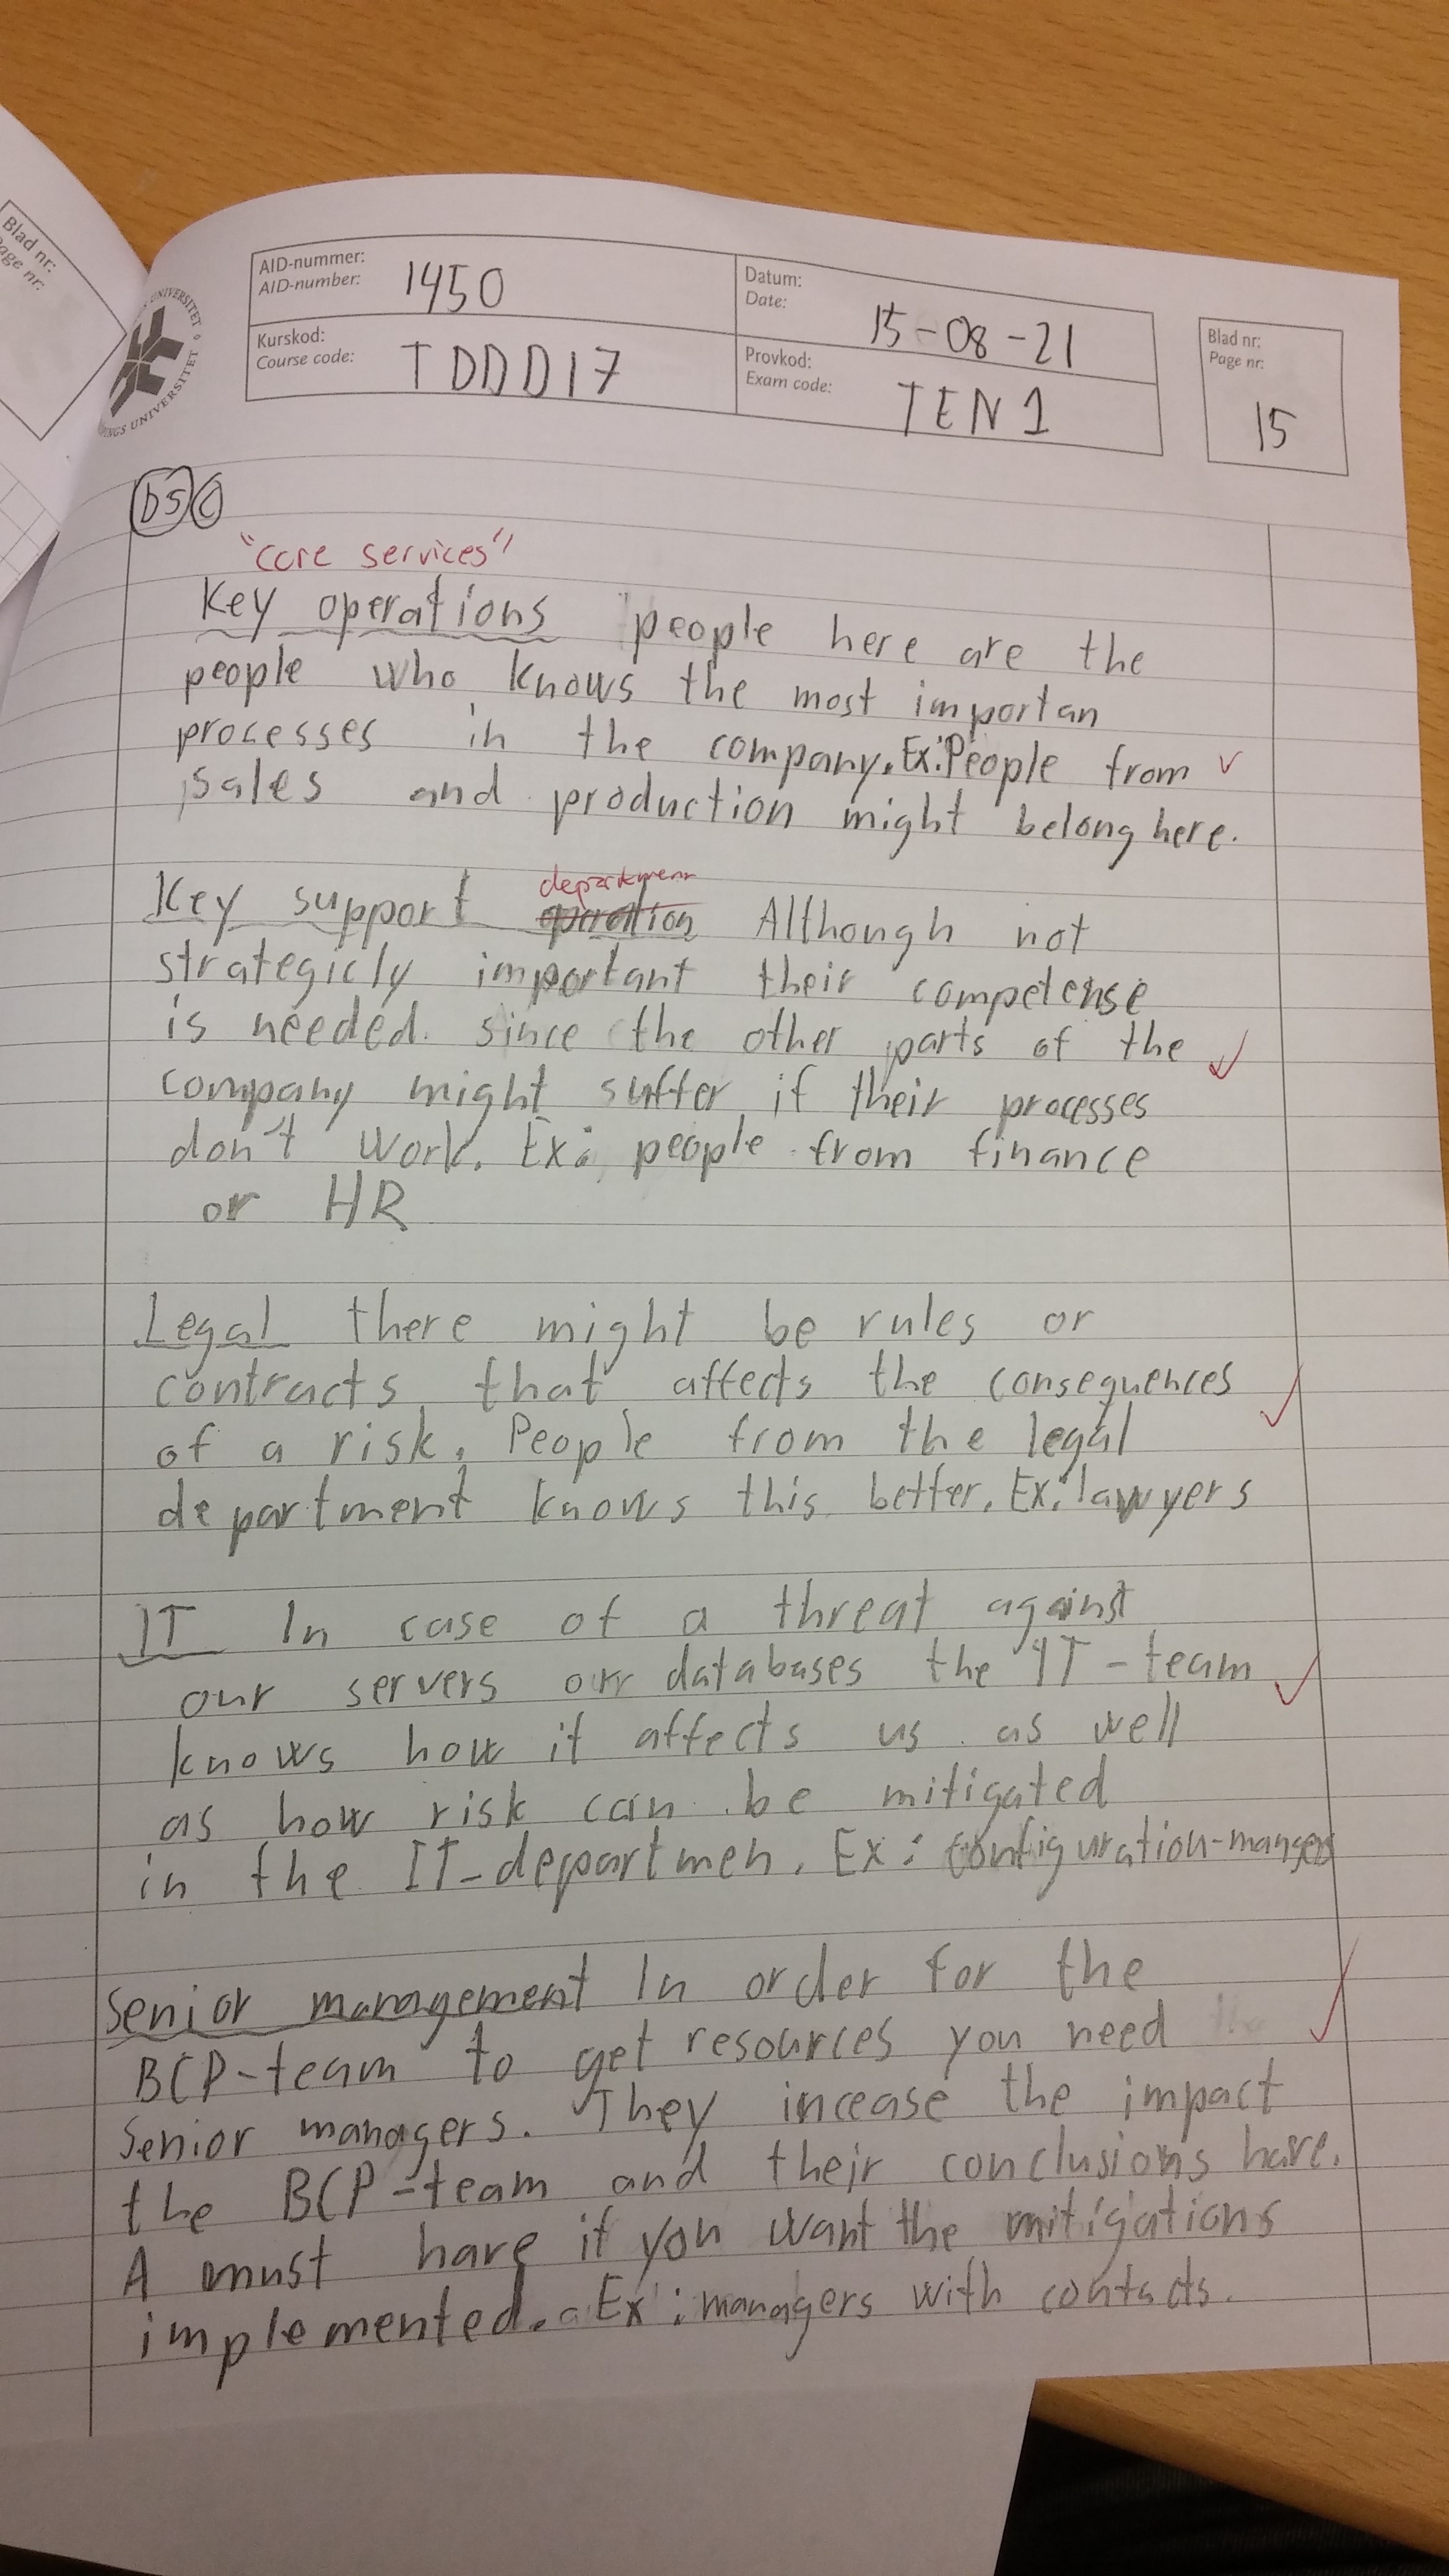 Blad nr:
Page nr:
AID-nummer:
AID-number:
1450
Datum:
Date:
15-08-21
Kurskod:
Course code:
TDDD17
Provkod:
Exam code:
TEN1
Blad nr:
Page nr:
15
UNIVERSITET
INGS UNIVERSITET
b5 c
"core services"
Key operations people here are the
people who knows the most importan
processes in the company. Ex: People from
sales and production might belong here.
department
Key support operation Although not
strategicly important their competense
is needed. since the other parts of the
company might suffer if their processes
don't work. Ex: people from finance
or HR
Legal there might be rules or
contracts that affects the consequences
of a risk. People from the legal
department knows this better. Ex: lawyers
IT In case of a threat against
our servers our databases the IT-team
knows how it affects us as well
as how risk can be mitigated
in the IT-departmen. Ex: configuration-mangers
Senior management In order for the
BCP-team to get resources you need
senior managers. They incease the impact
the BCP-team and their conclusions have.
A must have if you want the mitigations
implemented. Ex: managers with contacts.